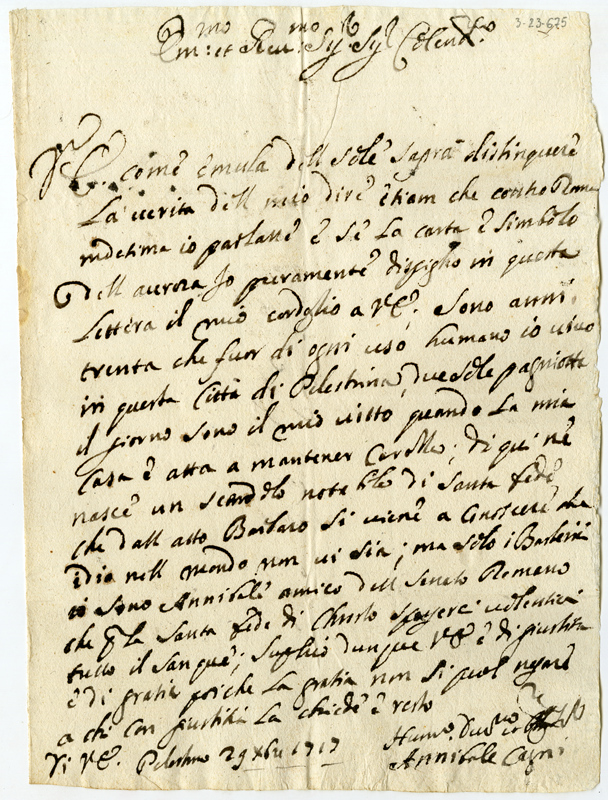 3-23-675
Em:mo et Reu:mo Sig:r Sig:r Colend:mo
V. E. come emula dell Sole saprà distinguere
La uerita dell mio dire etiam che contro Roma
medetima io parlasse e se La carta è simbolo
dell aurora Io puramente in questa
Lettera il mio cordoglio a V. E. Sono anni
trenta che fuor di ogni uso humano io uiuo
in questa Città di Pelestrina, due sole pagniotte
il giorno sono il mio uitto quando La mia
Casa è atta a mantener; di qui ne
nasce un scandolo notabile di Santa fede
che dall atto Barbaro si uiene a Conoscere che
idio nell mondo non ui sia; ma solo i Barberini
io sono Annibale amico dell Senato Romano
che p la Santa fede di Christo uolentieri
tutto il sangue; Suplico dunque V. E. è di giustitia
è di gratia poiche La gratia non si puol negare
a chi con giustitia La chiede è resto
Di V. E. Pelestrina 29 Xbre 1717
Humo
Annibale Cagni